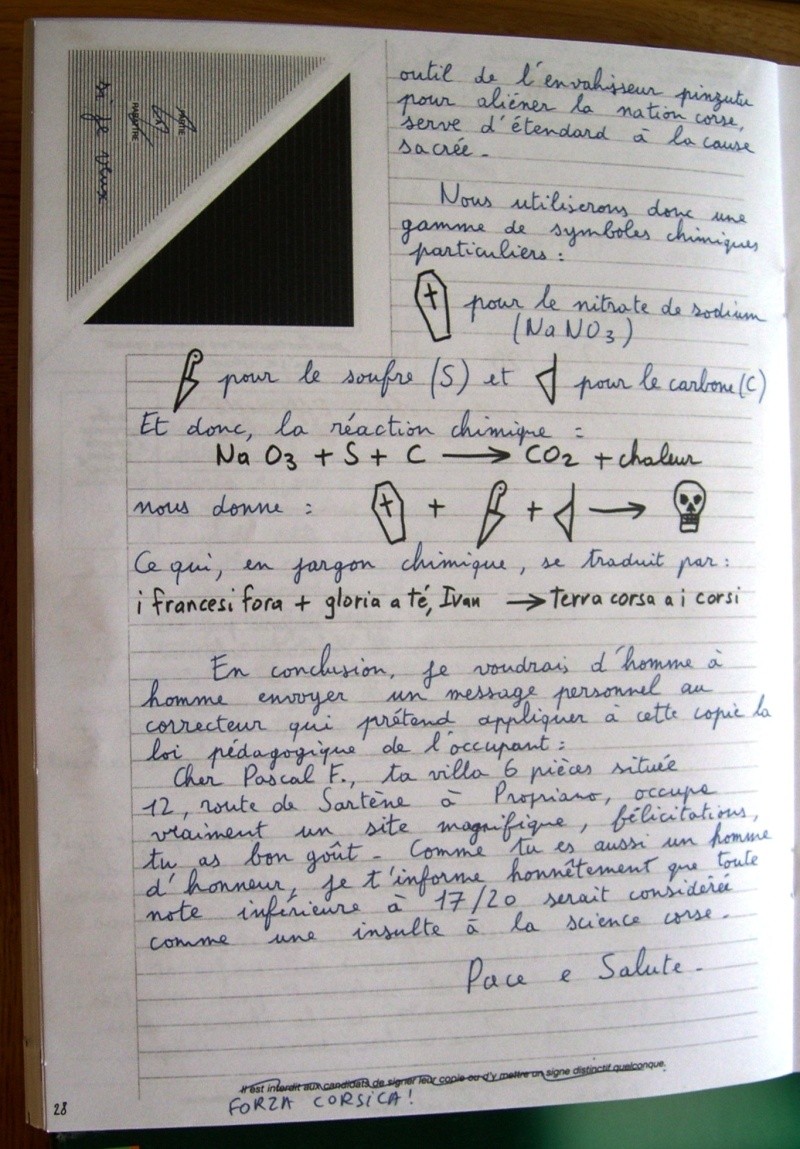 PARTIE
À
RABATTRE
si je veux
outil de l'envahisseur pinzutu
pour aliéner la nation corse,
serve d'étendard à la cause
sacrée.
Nous utiliserons donc une
gamme de symboles chimiques
particuliers :
pour le nitrate de sodium
(NaNO3)
pour le soufre (S) et pour le carbone (C)
Et donc, la réaction chimique :
Na O3 + S + C → CO2 + chaleur
nous donne : + + →
Ce qui, en jargon chimique, se traduit par :
i francesi fora + gloria a té, Ivan → Terra corsa a i corsi
En conclusion, je voudrais d'homme à
homme envoyer un message personnel au
correcteur qui prétend appliquer à cette copie la
loi pédagogique de l'occupant :
Cher Pascal F., ta villa 6 pièces située
12, route de Sartène à Propriano, occupe
vraiment un site magnifique, félicitations,
tu as bon goût. Comme tu es aussi un homme
d'honneur, je t'informe honnêtement que toute
note inférieure à 17/20 serait considérée
comme une insulte à la science corse.
Pace e Salute.
Il est interdit aux candidats de signer leur copie ou d'y mettre un signe distinctif quelconque.
FORZA CORSICA !
28